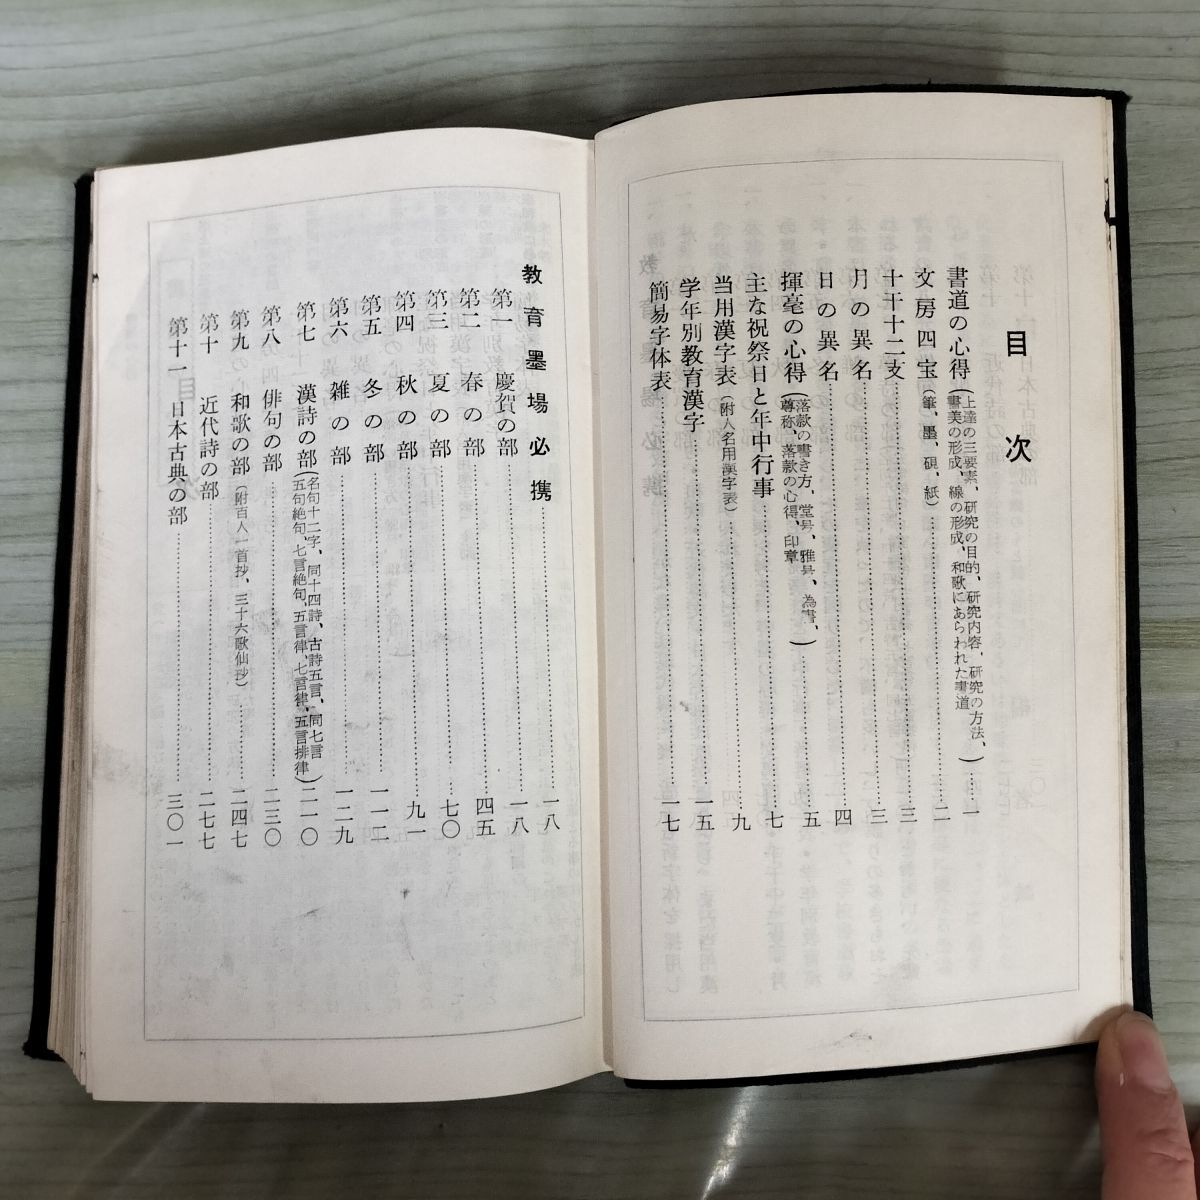 目次
書道の心得(上達の三要素、研究の目的、研究内容、研究の方法、書美の形成、線の形成、和歌にあらわれた書道)…一
文房四宝(筆、墨、硯、紙)…二
十干十二支…三
月の異名…三
日の異名…四
揮毫の心得(落款の書き方、堂号、雅号、為書、尊称、落款の心得、印章)…五
主な祝祭日と年中行事…七
当用漢字表(附人名用漢字表)…九
学年別教育漢字…一五
簡易字体表…一七
教育墨場必携…一八
第一 慶賀の部…一八
第二 春の部…四五
第三 夏の部…七〇
第四 秋の部…九一
第五 冬の部…一一二
第六 雑の部…一二九
第七 漢詩の部(名句十二字、同十四詩、古詩五言、同七言、五句絶句、七言絶句、五言律、七言律、五言排律)二一〇
第八 俳句の部…二三〇
第九 和歌の部(附百人一首抄、三十六歌仙抄)…二四七
第十 近代詩の部…二七七
第十一 日本古典の部…三〇一